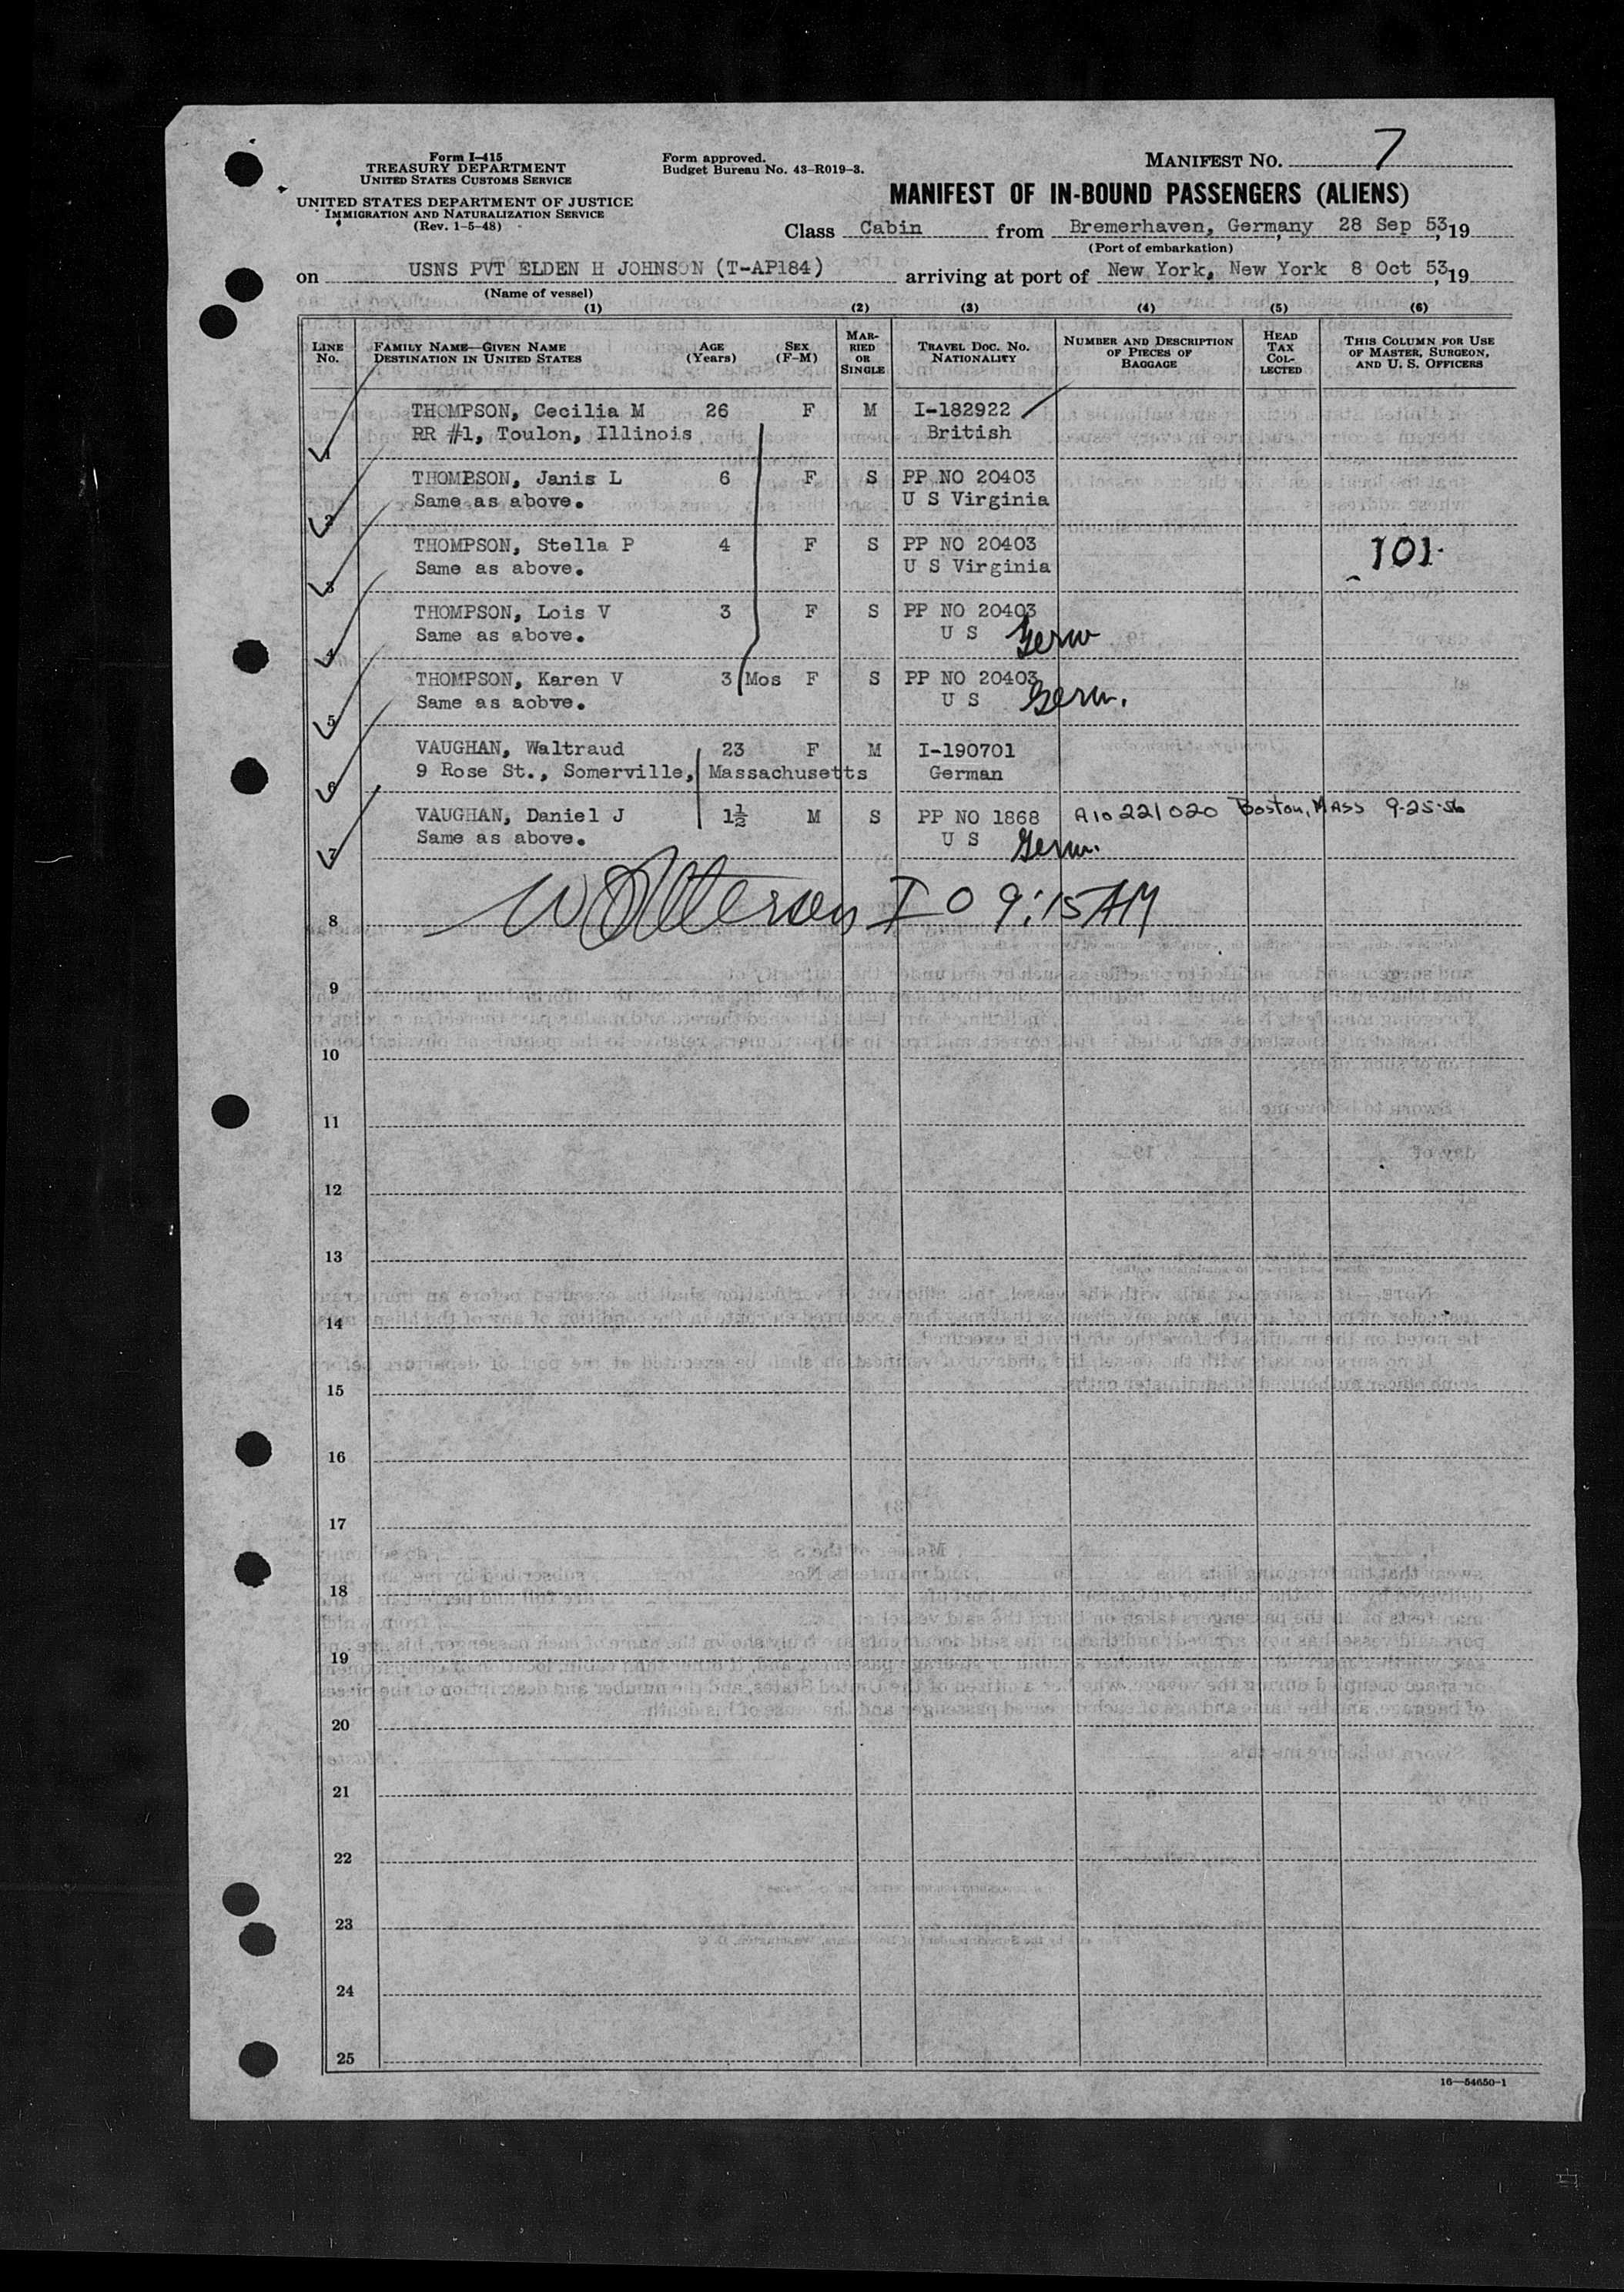 Form I-415
TREASURY DEPARTMENT
UNITED STATES CUSTOMS SERVICE
UNITED STATES DEPARTMENT OF JUSTICE
IMMIGRATION AND NATURALIZATION SERVICE
(Rev. 1-5-48)
Form approved.
Budget Bureau No. 43-R019-3.
MANIFEST NO. 7
MANIFEST OF IN-BOUND PASSENGERS (ALIENS)
Class Cabin from Bremerhaven, Germany 28 Sep 53, 19
(Port of embarkation)
on USNS PVT ELDEN H JOHNSON (T-AP184) arriving at port of New York, New York 8 Oct 53, 19
(Name of vessel)
(1) (2) (3) (4) (5) (6)
LINE No. FAMILY NAME—GIVEN NAME DESTINATION IN UNITED STATES AGE (Years) SEX (F-M) MARRIED OR SINGLE TRAVEL DOC. NO. NATIONALITY NUMBER AND DESCRIPTION OF PIECES OF BAGGAGE HEAD TAX COLLECTED THIS COLUMN FOR USE OF MASTER, SURGEON, AND U. S. OFFICERS
THOMPSON, Cecilia M 26 F M I-182922
1 RR #1, Toulon, Illinois British
THOMPSON, Janis L 6 F S PP NO 20403
2 Same as above. U S Virginia
THOMPSON, Stella P 4 F S PP NO 20403 101
3 Same as above. U S Virginia
THOMPSON, Lois V 3 F S PP NO 20403
4 Same as above. U S Germ
THOMPSON, Karen V 3 Mos F S PP NO 20403
5 Same as aobve. U S Germ.
VAUGHAN, Waltraud 23 F M I-190701
6 9 Rose St., Somerville, Massachusetts German
VAUGHAN, Daniel J 1½ M S PP NO 1868 A10 221 020 Boston, MASS 9-25-56
7 Same as above. U S Germ.
8 I O 9:15 AM
9
10
11
12
13
14
15
16
17
18
19
20
21
22
23
24
25
16—54650-1